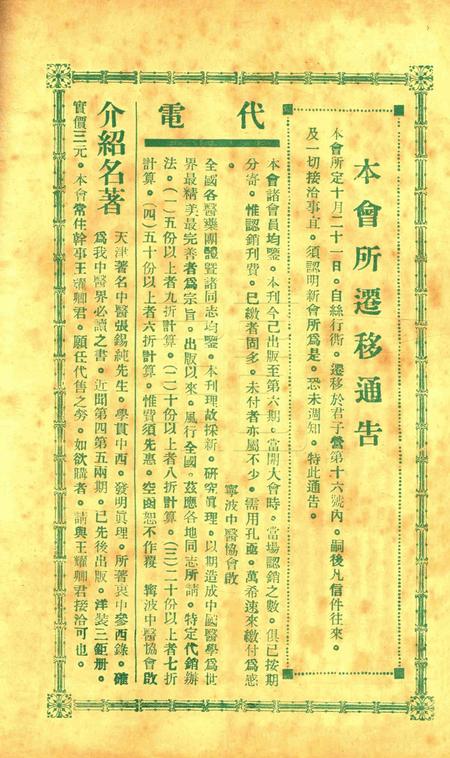 本會所遷移通告
本會所定十月二十一日。自絲行街。遷移於君子營第十六號內。嗣後凡信件往來。
及一切接洽事宜。須認明新會所爲是。恐未週知。特此通告。
代電
本會諸會員均鑒。本刊今已出版至第六期。當開大會時。當場認銷之數。俱已按期
分寄。惟認銷刊費。已繳者固多。未付者亦屬不少。需用孔亟。萬希速來繳付爲感
。　寧波中醫協會啟
全國各醫藥團體暨諸同志均鑒。本刊理故採新。研究眞理。以期造成中國醫學爲世
界最精美最完善者爲宗旨。出版以來。風行全國。茲應各地同志所請。特定代銷辦
法。(一)五份以上者九折計算。(二)十份以上者八折計算。(三)二十份以上者七折
計算。(四)五十份以上者六折計算。惟費須先惠。空函恕不作覆　寧波中醫協會啟
介紹名著
天津著名中醫張錫純先生。學貫中西。發明眞理。所著衷中參西錄。確
爲我中醫界必讀之書。近聞第四第五兩期。已先後出版。洋裝三鉅册。
實價三元。本會常住幹事王耀卿君。願任代售之勞。如欲購者。請與王耀卿君接洽可也。